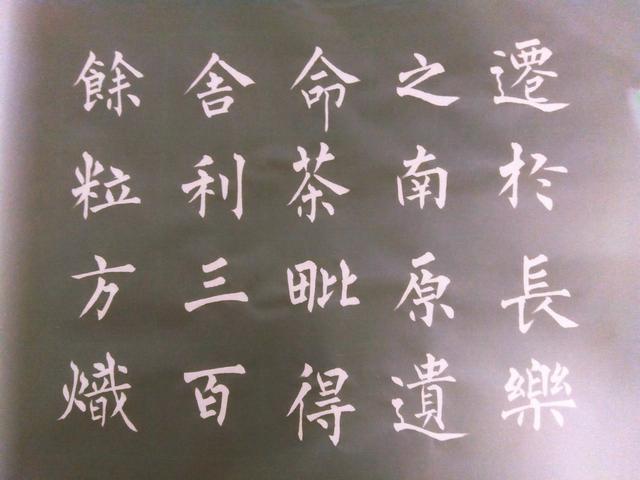 遷於長樂
之南原遺
命茶毗得
舍利三百
餘粒方熾